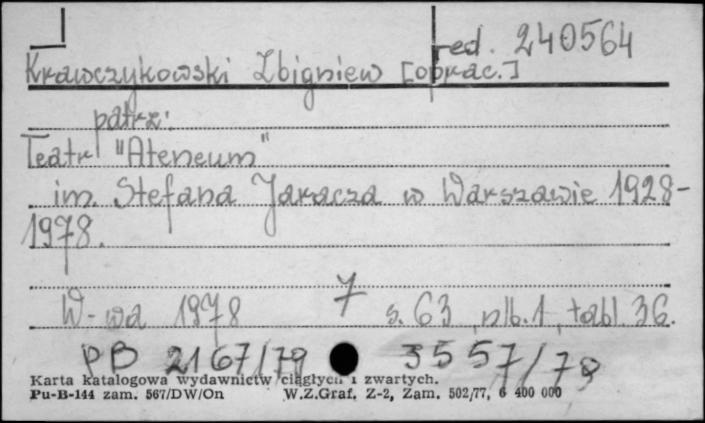 red. 240564
Krawczykowski Zbigniew [oprac.]
patrz:
Teatr "Ateneum"
im. Stefana Jaracza w Warszawie 1928-
1978.
7
W-wa 1978 s. 63, nlb. 1, tabl. 36.
PB 2167/79 3557/79
Karta katalogowa wydawnictw ciągłych i zwartych.
Pu-B-144 zam. 567/DW/On W.Z.Graf. Z-2, Zam. 502/77, 6 400 000